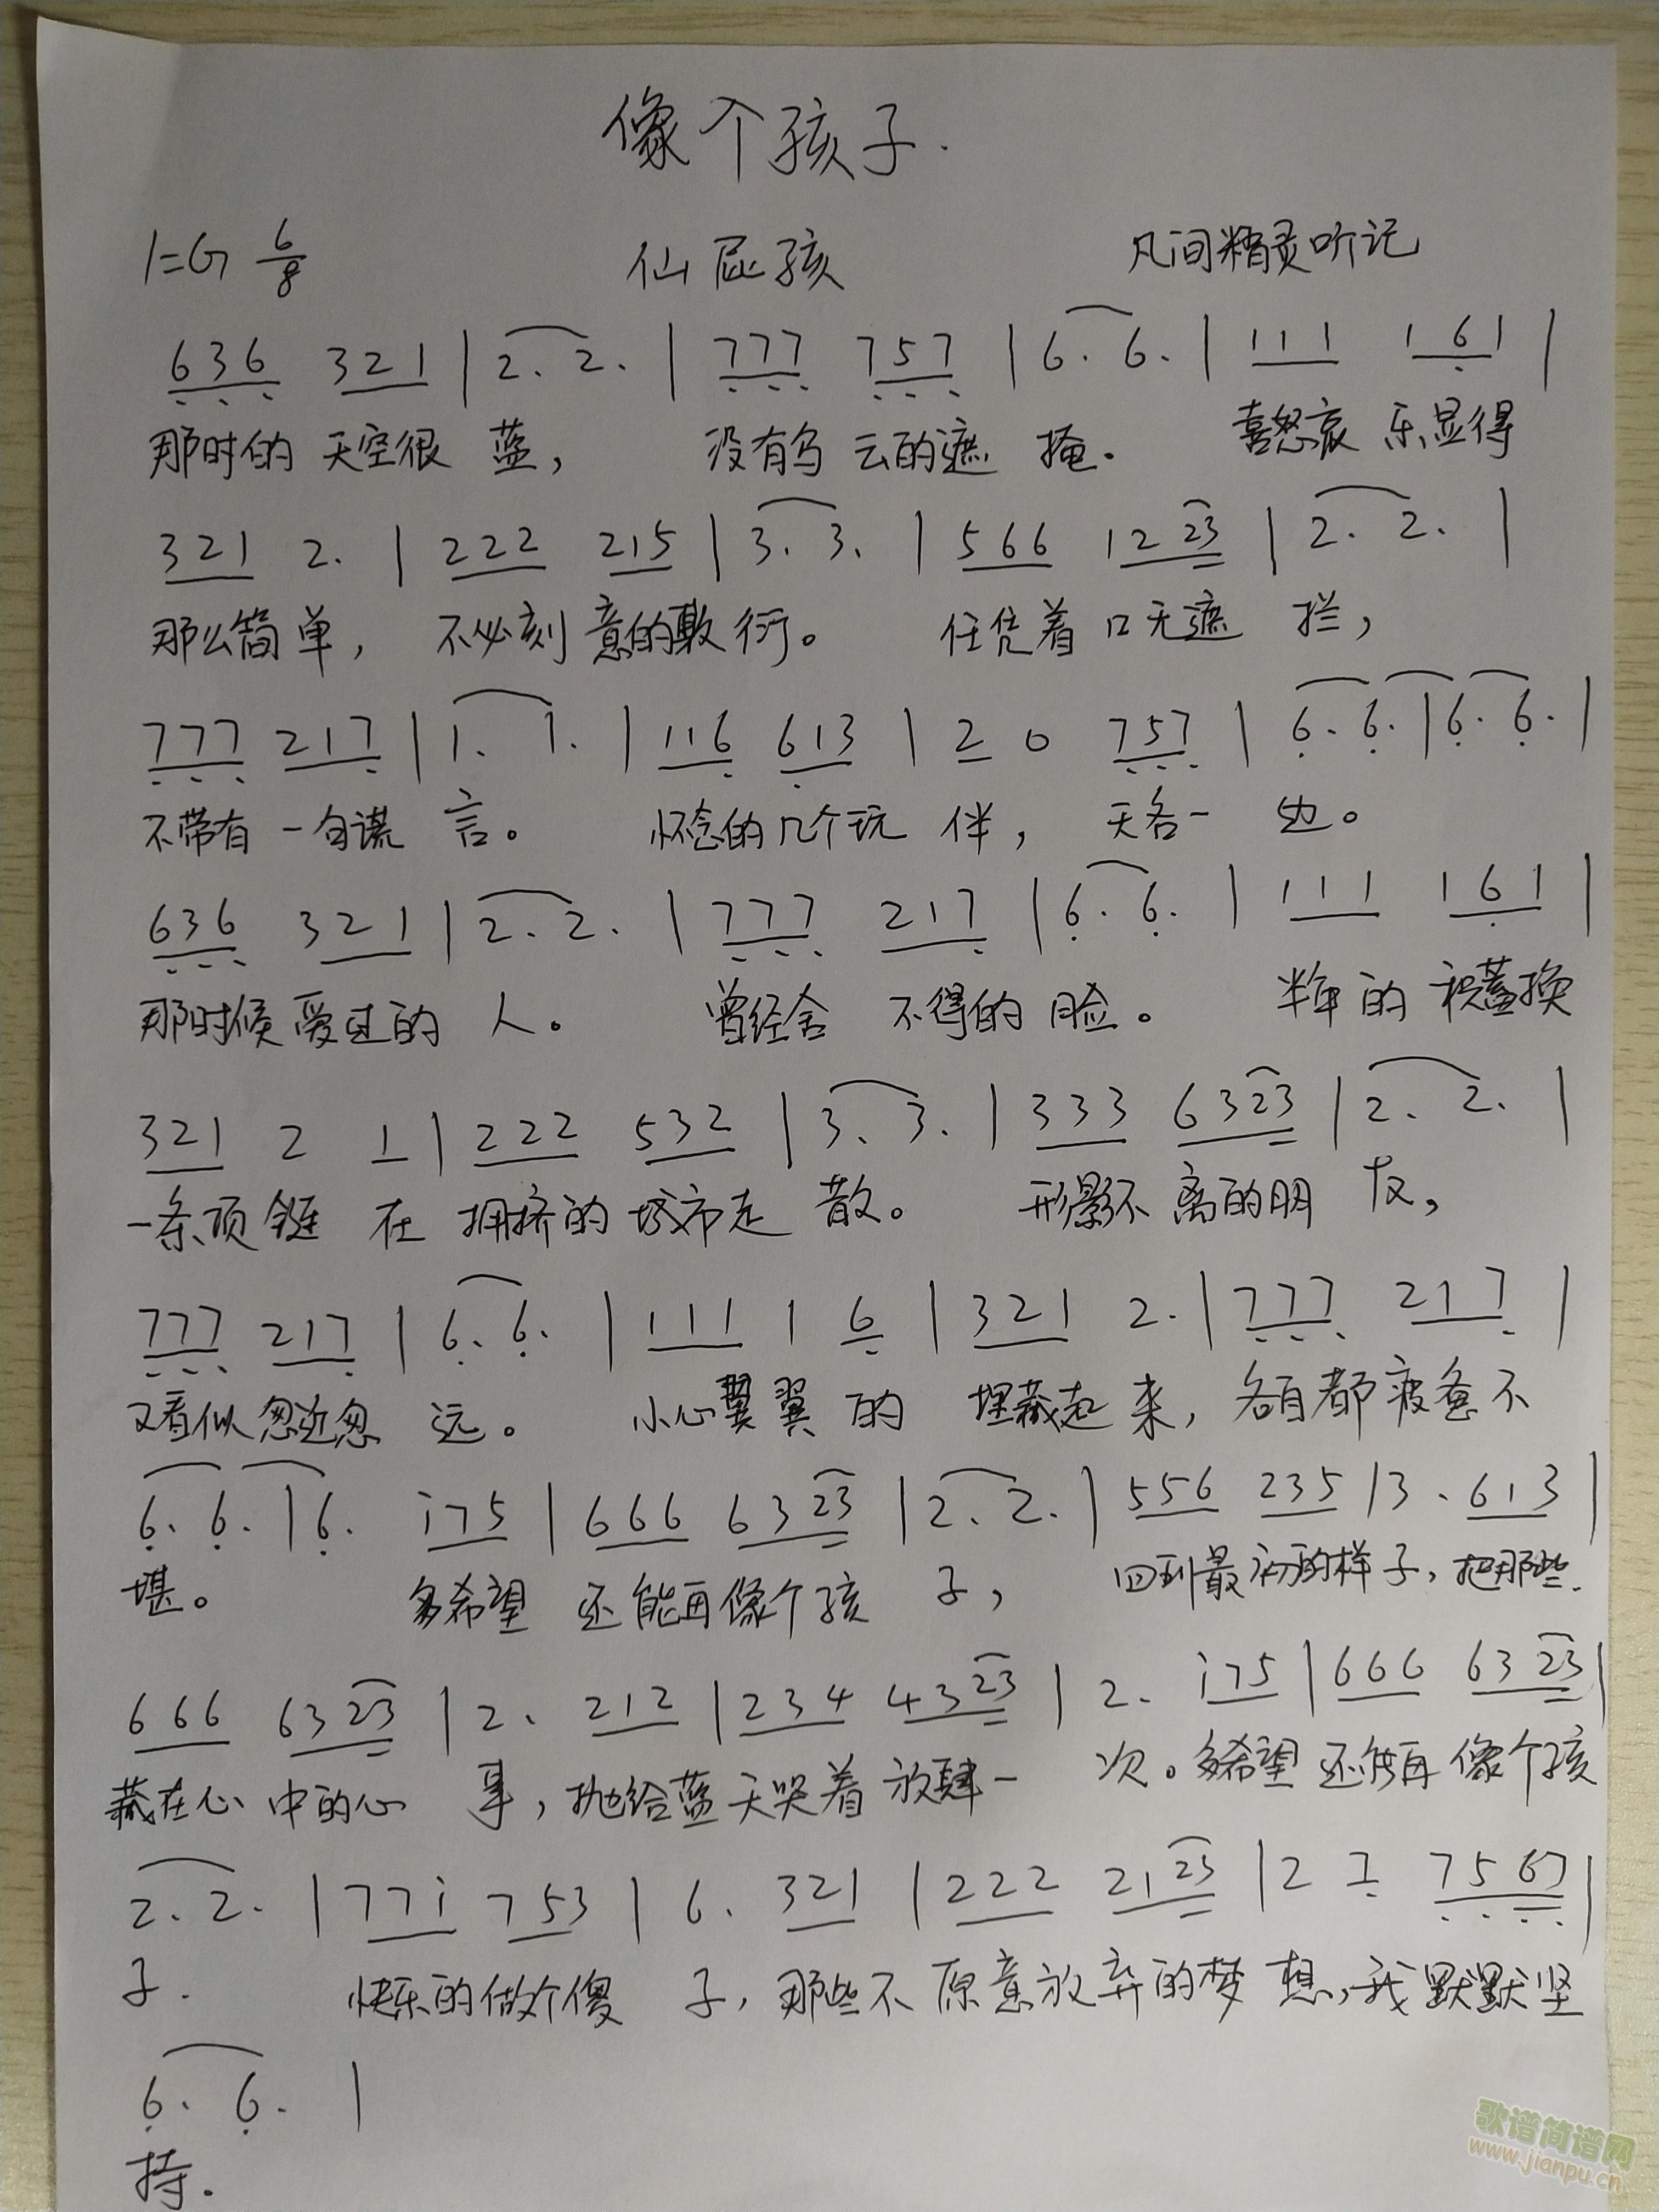 像个孩子.
1=G 6/8 仙屁孩 凡间精灵听记
636 321 | 2. 2. | 777 757 | 6. 6. | 111 161 |
那时的 天空很 蓝， 没有乌 云的遮 掩. 喜怒哀 乐显得
321 2. | 222 215 | 3. 3. | 566 1223 | 2. 2. |
那么简单， 不必刻 意的敷 衍。 任凭着 口无遮 拦，
777 217 | 1. 1. | 116 613 | 2 0 757 | 6. 6. | 6. 6. |
不带有 一句谎 言。 怀念的 几个玩 伴， 天各一 边。
636 321 | 2. 2. | 777 217 | 6. 6. | 111 161 |
那时候 爱过的 人。 曾经舍 不得的 脸。 半年的 积蓄换
321 2 1 | 222 532 | 3. 3. | 333 6323 | 2. 2. |
一条项 链 在 拥挤的 城市走 散。 形影不 离的朋 友，
777 217 | 6. 6. | 111 1 6 | 321 2. | 777 217 |
又看似 忽近忽 远。 小心翼 翼 的 埋藏起 来， 各自都 疲惫不
6. 6. | 6. i75 | 666 6323 | 2. 2. | 556 235 | 3. 613 |
堪。 多希望 还能再 像个孩 子， 回到最 初的样 子，把那些.
666 6323 | 2. 212 | 234 4323 | 2. i75 | 666 6323 |
藏在心 中的心 事，抛给蓝 天哭着 放肆一 次。多希望 还能再 像个孩
2. 2. | 77i 753 | 6. 321 | 222 2123 | 2 7 7567 |
子. 快乐的 做个傻 子，那些不 愿意放 弃的梦 想，我 默默坚
6. 6. |
持.
歌谱简谱网
www.jianpu.cn